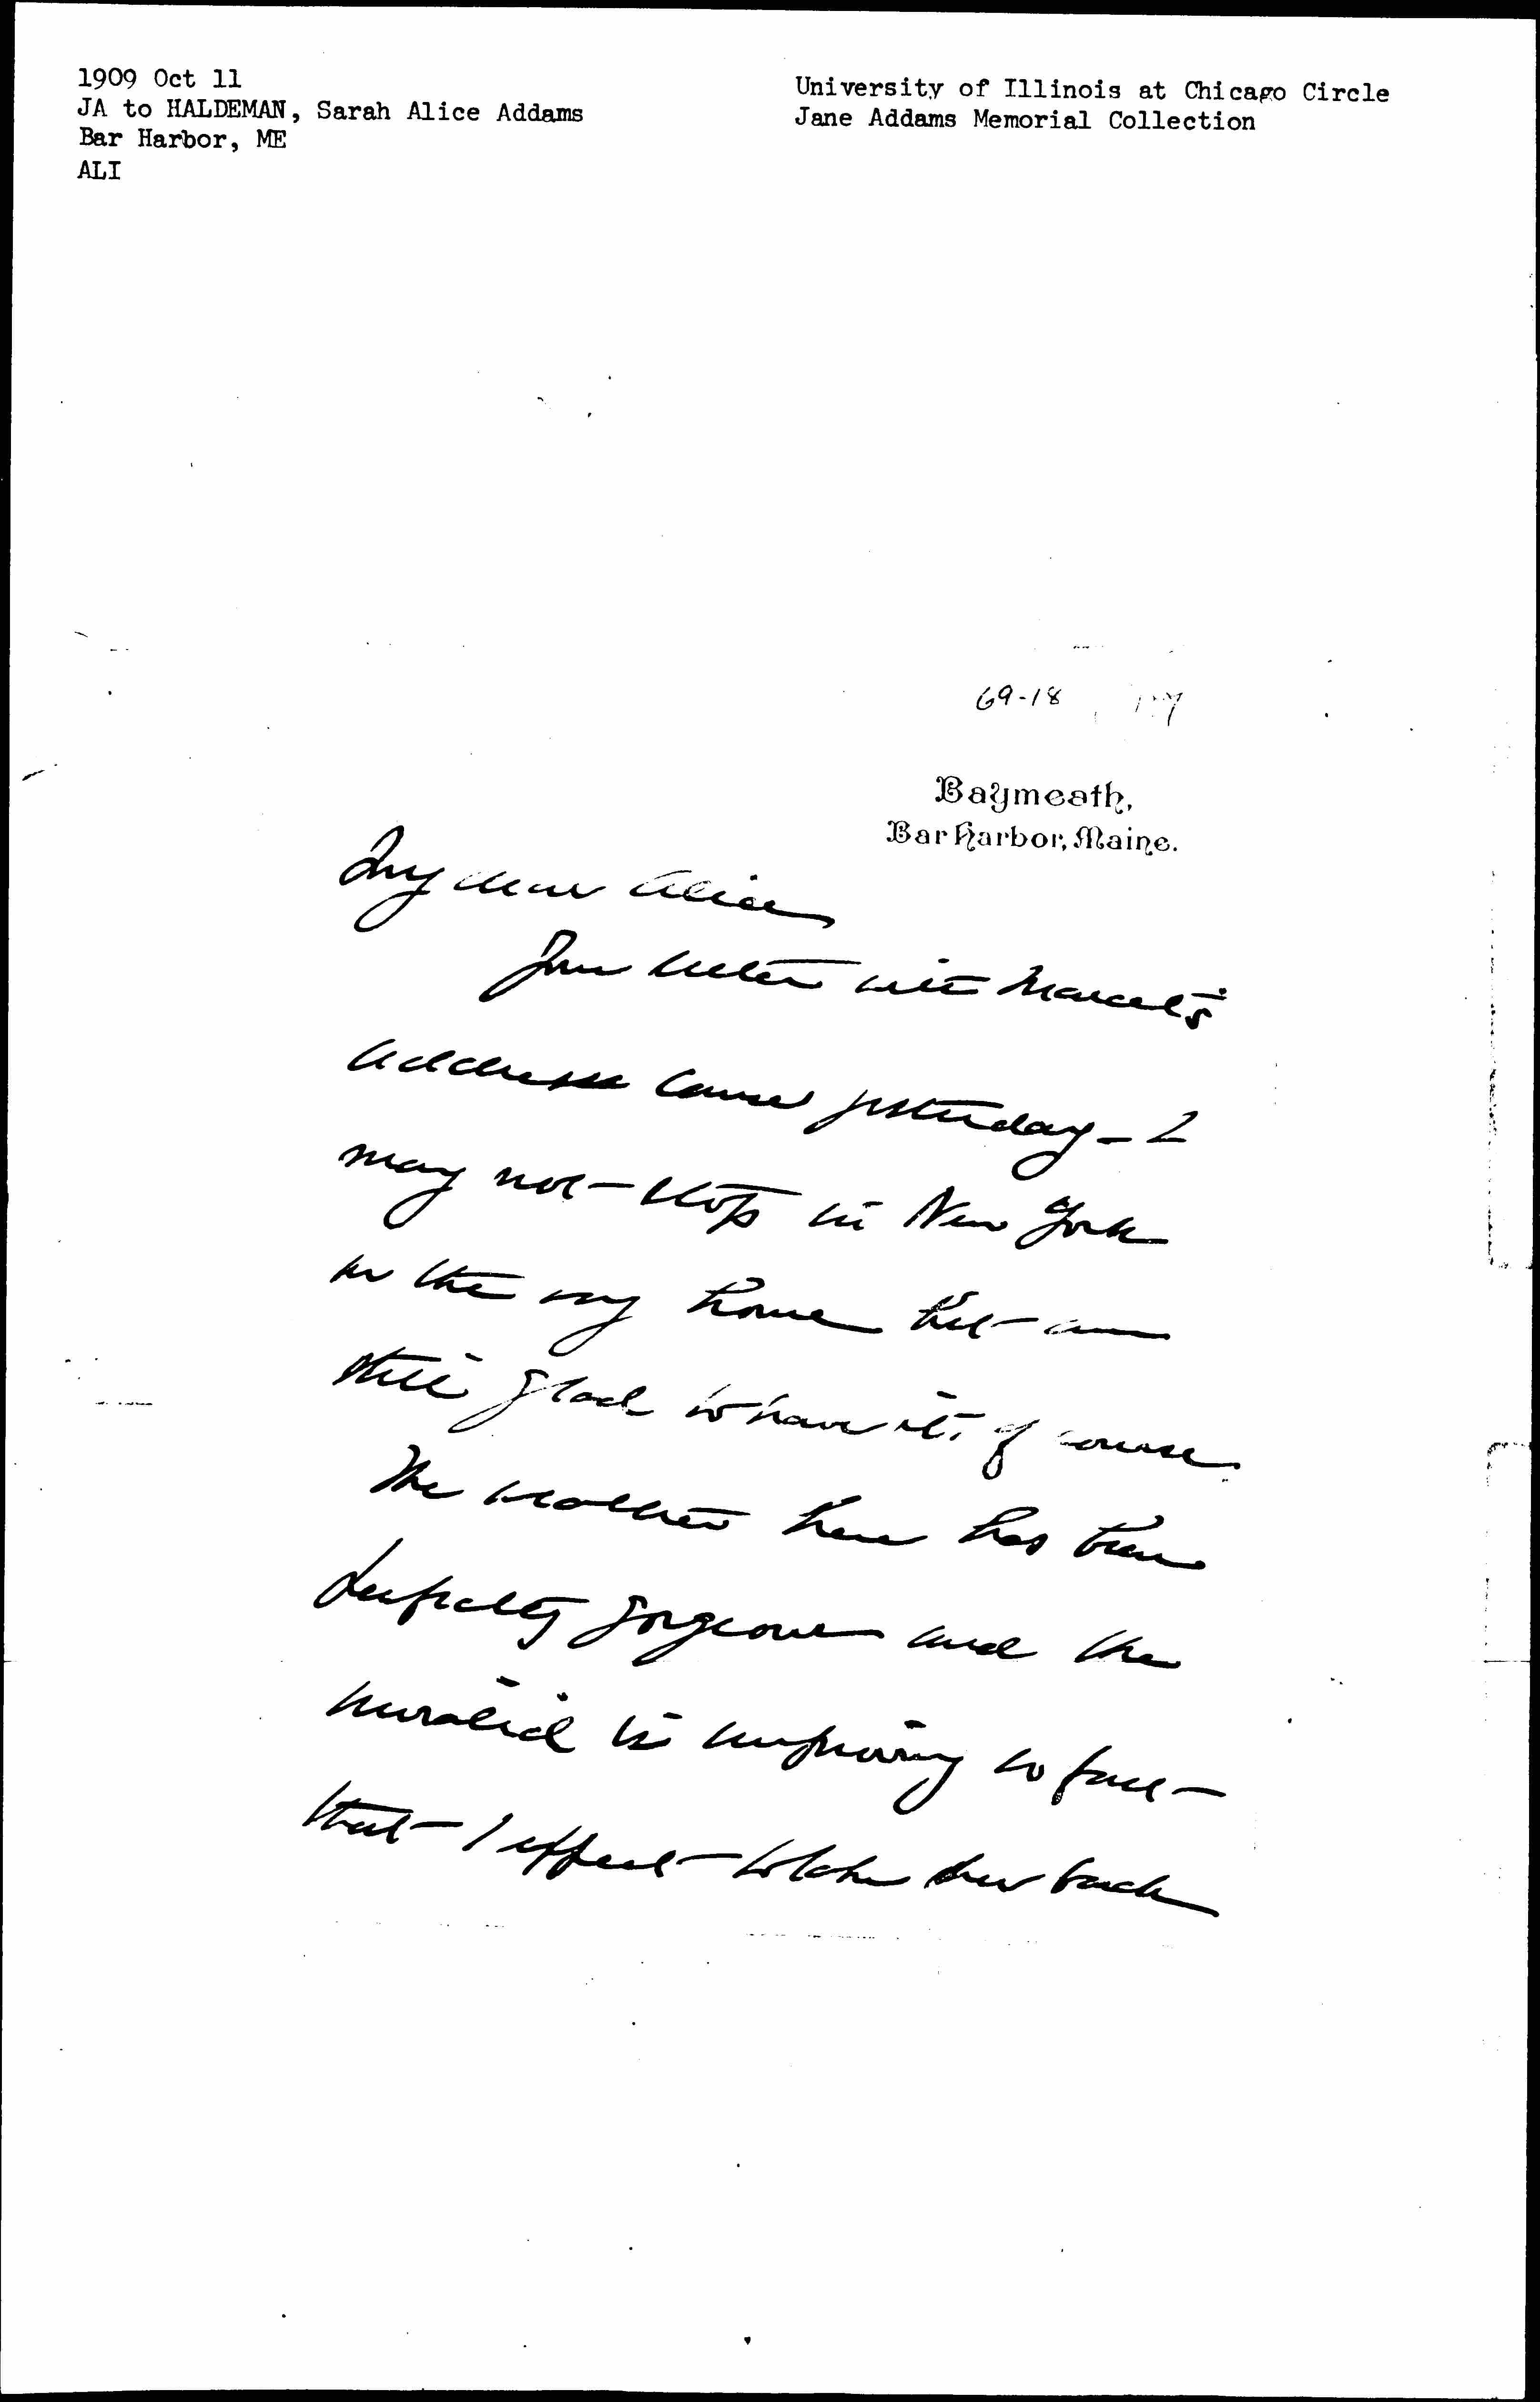 1909 Oct 11
JA to HALDEMAN, Sarah Alice Addams
Bar Harbor, ME
ALI
University of Illinois at Chicago Circle
Jane Addams Memorial Collection
69-18
Baymeath,
Bar Harbor, Maine.
My dear Alice
Your letter with Marcet's
address came yesterday - I
may not stop in New York
on the way home but am
still glad to have it, of course.
The weather here has been
perfectly gorgeous and the
invalid is improving so fast
that I expect to take her back